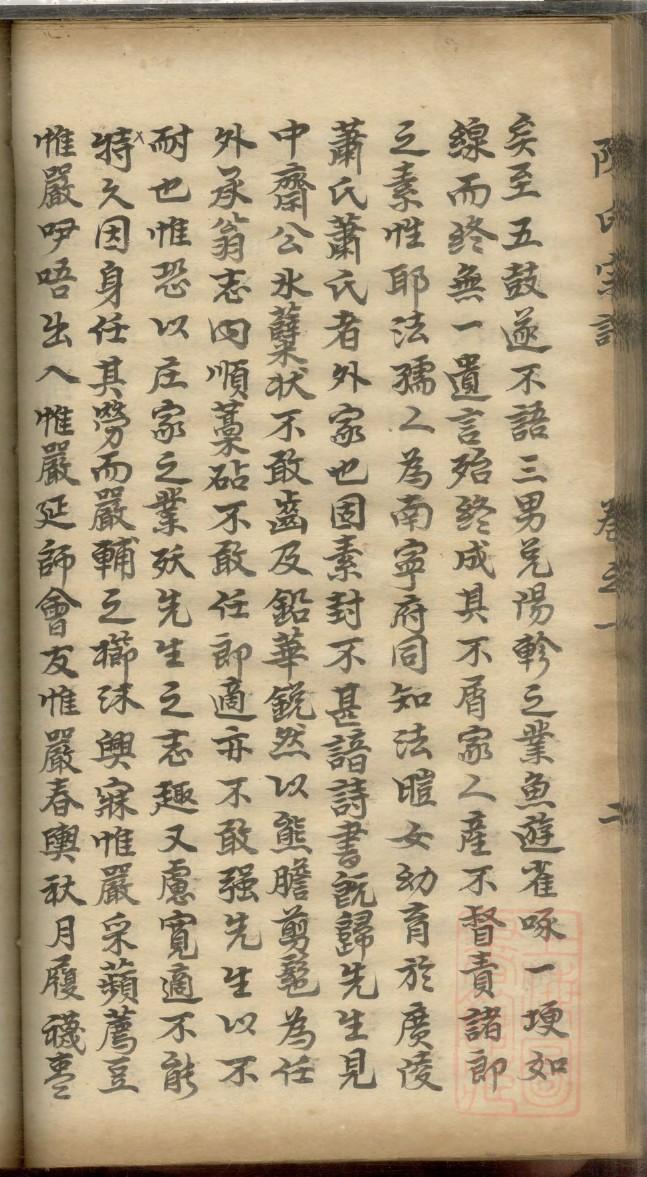 陳氏宗譜 卷之一 二
矣至五鼓遂不語三男兌陽軫之業魚遊雀啄一埂如
線而終無一遺言殆終成其不屑家人產不督責諸郎
之素性耶法孺人為南寧府同知法暟女幼育於廣陵
蕭氏蕭氏者外家也固素封不甚諳詩書既歸先生見
中齋公氷蘖状不敢齒及鉛華鋭然以熊膽剪髢為任
外承翁志內順藁砧不敢任郎適亦不敢强先生以不
耐也惟恐以庄家之業殀先生之志趣又慮寬適不能
特久因身任其勞而嚴輔之櫛沐興寐惟嚴采蘋薦豆
惟嚴咿唔出入惟嚴延師會友惟嚴春輿秋月履襪棗